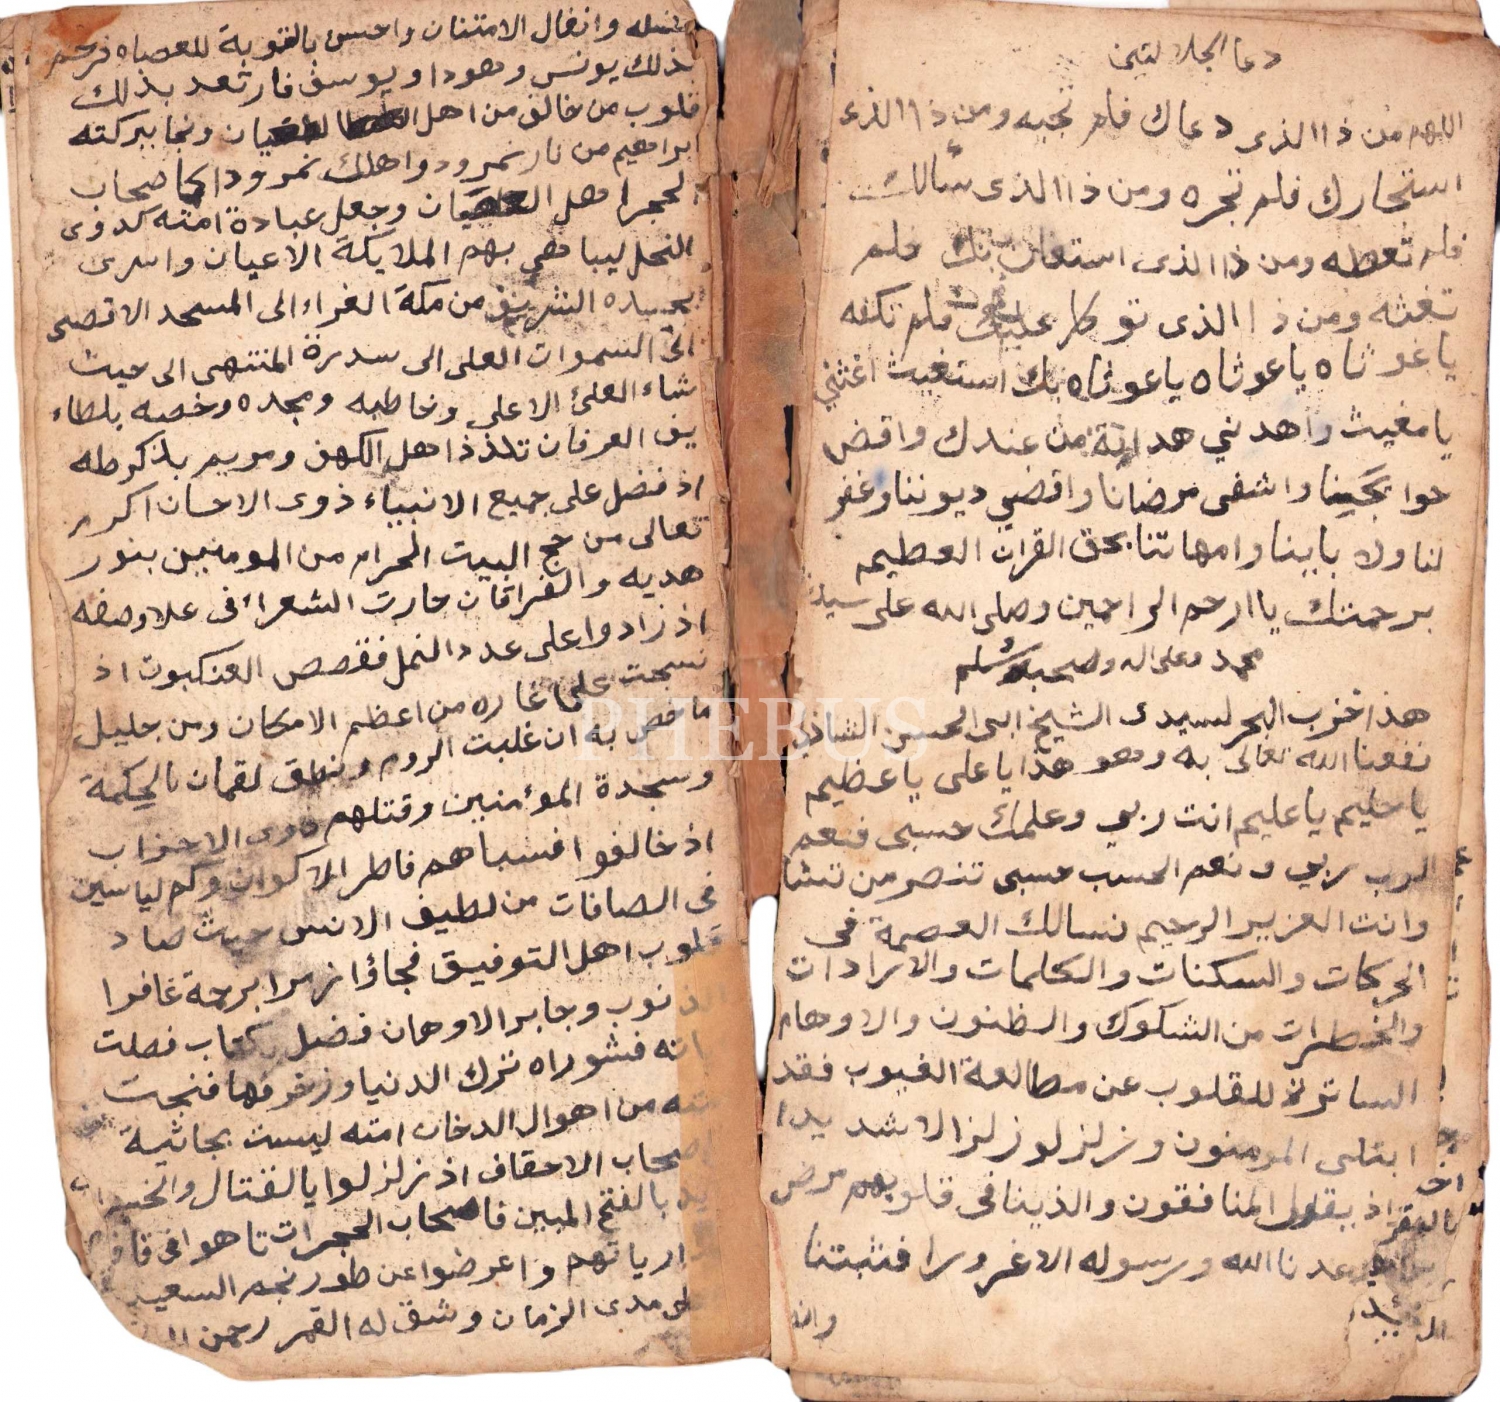 دعا الجلالتين
اللهم من ذا الذى دعاك فلم تجبه ومن ذا الذى
استجارك فلم تجره ومن ذا الذى سألك
فلم تعطه ومن ذا الذى استغاث بك فلم
تغثه ومن ذا الذى توكل عليك فلم تكفه
ياغوثاه ياعوثاه ياعوثاه بك استغيث اغثني
يامغيث واهدني هداية من عندك واقض
حوايجنا واشفى مرضانا واقضي ديوننا وغفر
لنا ولا باينا وامهاتنا بحق القران العظيم
برحمتك يا ارحم الراحمين وصلى الله على سيدنا
محمد وعلى اله وصحبه وسلم
هذا حزب البحر لسيدى الشيخ ابى الحسن الشاذلى
نفعنا الله تعالى به وهو هذا ياعلى ياعظيم
ياحليم ياعليم انت ربي وعلمك حسبى فنعم
الرب ربي ونعم الحسب حسبى تنصر من تشا
وانت العزيز الرحيم نسالك العصمة فى
الحركات والسكنات والكلمات والارادات
والخطرات من الشكوك والظنون والاوهام
الساترة للقلوب عن مطالعة الغيوب فقد
ابتلى المومنون وزلزلو زلزالا شديدا
اذ يقول المنافقون والذينا فى قلوبهم مرض
وعدنا الله ورسوله الا غرورا فثبتنا
وانه
وانفال الامتنان واحسن بالتوبة للعصاه فرحم
بذلك يونس وهودا ويوسف فارتعد بذلك
قلوب من خالق من اهل ونجا ببركته
ابراهيم من نار نمرود واهلك نمرودا كما صحاب
الحجر اهل وجعل عبادة امته كدوى
النحل ليباهي بهم الملايكة الاعيان واسرى
بعبده الشريف من مكة الغراء الى المسجد الاقصى
الى السموات العلى الى سدرة المنتهى الى حيث
شاء العلى الاعلى وخاطبه ومجده وخصه بلطاء
يف العرفان تلذذ اهل الكهف ومريم بذكر طه
اذ فضل على جميع الانبياء ذوى الاحسان اكرر
تعالى من حج البيت الحرام من المومنين بنور
هديه والفراقان حارت الشعراء فى علا وصفه
اذ زادوا على عدد النمل فقصص العنكبوت اذ
نسجت على غاره من اعظم الامكان ومن جليل
ما خص به ان غلبت الروم ونطق لقمان بالحكمة
وسجدة الموءمنين وقتلهم ذوى الاحزاب
اذ خالفوا فسباهم فاطر الاكوان وكم لياسين
فى الصافات من لطيف الانس حيث صاد
قلوب اهل التوفيق فجاؤا زمرا برحمة غافرا
الذنوب وجابر الاوهان فضل بكتاب فصلت
انه فشوراه ترك الدنيا وزخرفها فنجت
منه من اهوال الدخان امته ليست بجاثية
اصحاب الاحقاف اذ زلزلوا بالقتال
بالفتح المبين فاصحاب الحجرات تاهوا فى قاف
وذاريا تهم واعرضوا عن طور نجم السعيد
على مدى الزمان وشق له القمر رحمن
PHEBUS